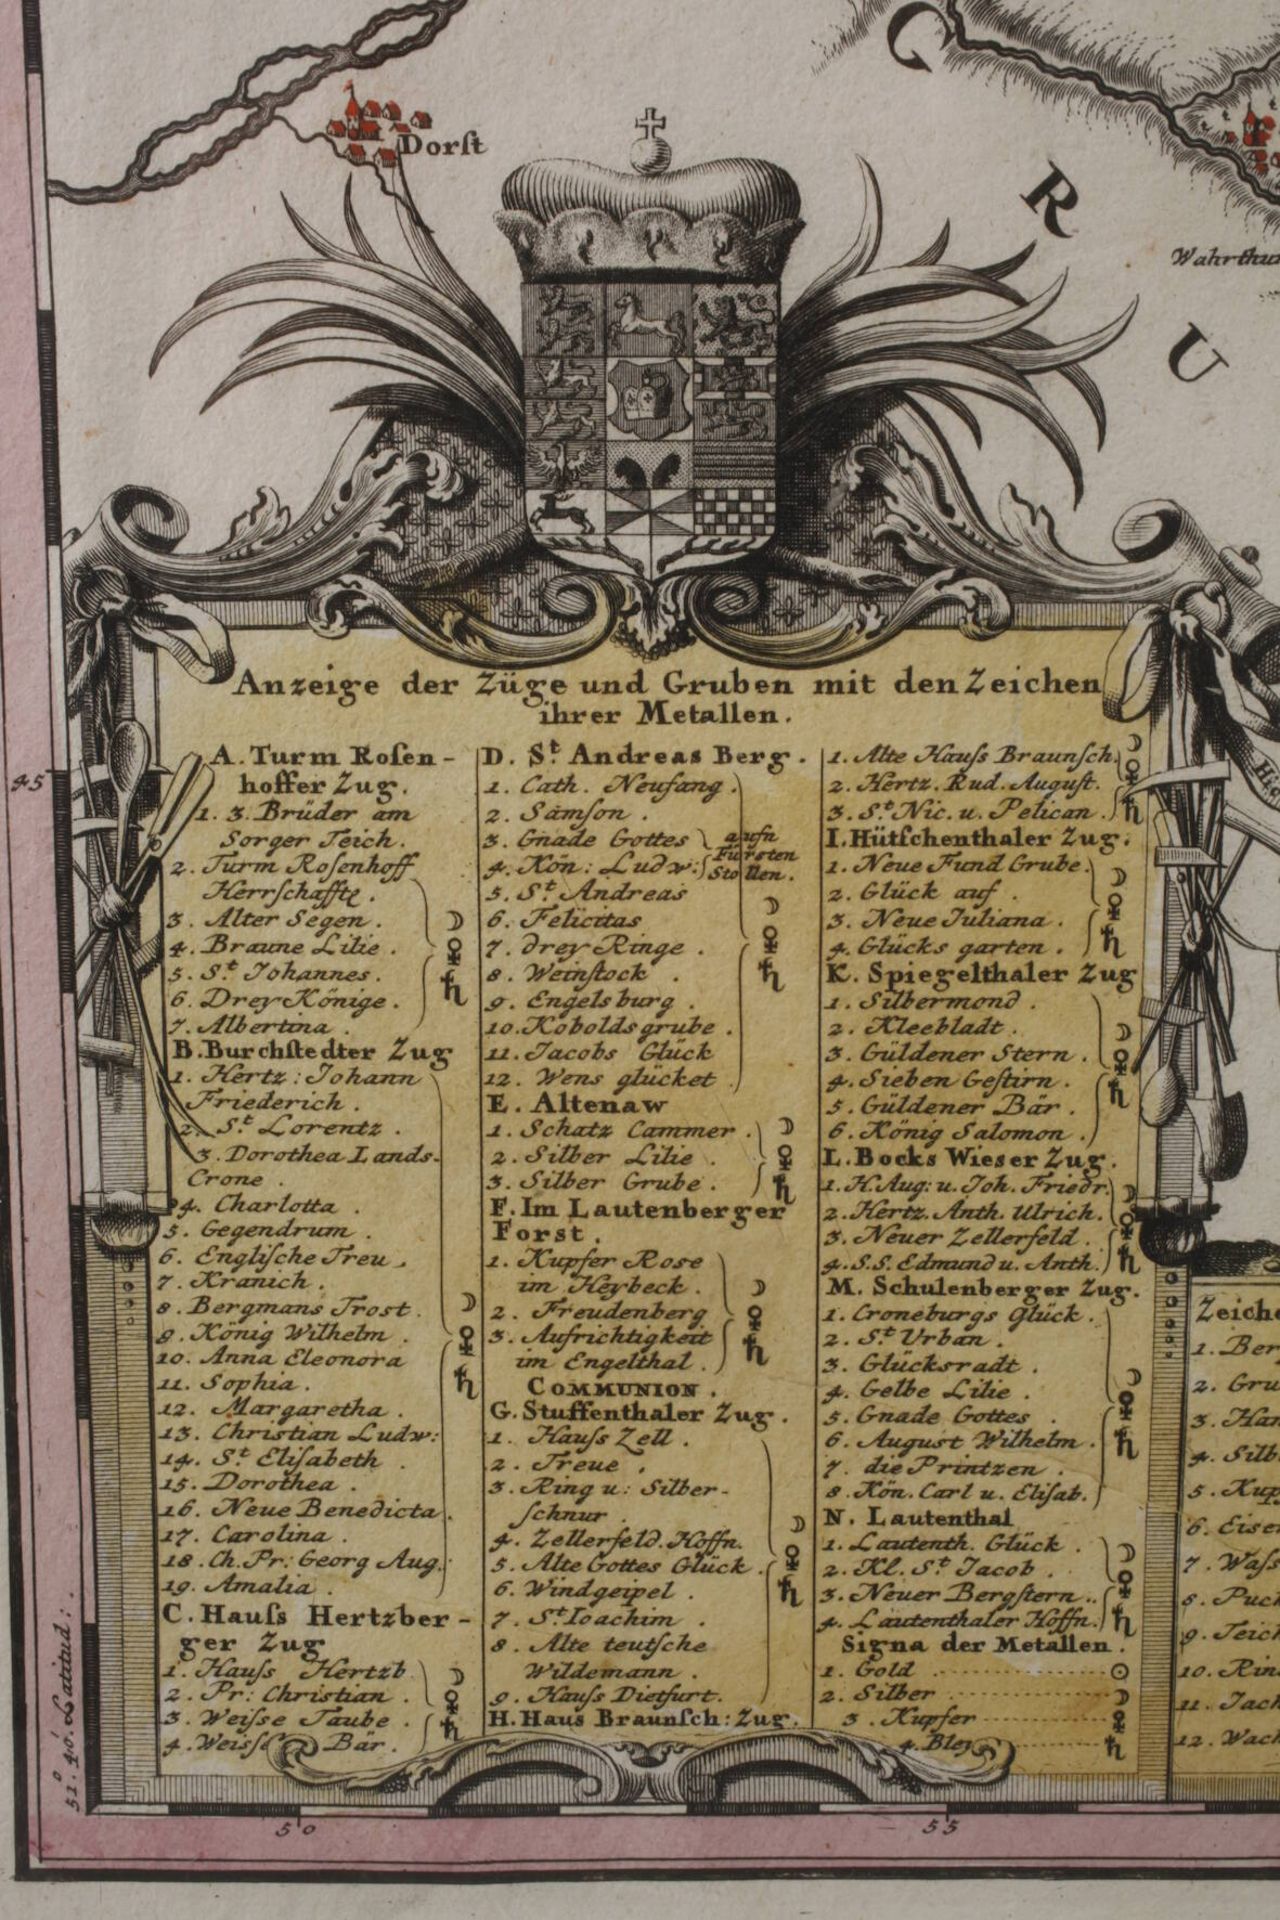 Dorſt
C
R
U
45
51. 40. Latitud:
Anzeige der Züge und Gruben mit den Zeichen
ihrer Metallen.
A. Turm Roſen-
hoffer Zug.
1. 3. Brüder am
Sorger Teich.
2. Turm Roſenhoff
Herrſchaffte.
3. Alter Segen.
4. Braune Lilie.
5. St. Johannes.
6. Drey Könige.
7. Albertina.
B. Burchſtedter Zug
1. Hertz: Johann
Friederich.
2. St. Lorentz.
3. Dorothea Lands-
Crone.
4. Charlotta.
5. Gegendrum.
6. Engliſche Treu.
7. Kranich.
8. Bergmans Troſt.
9. König Wilhelm.
10. Anna Eleonora
11. Sophia.
12. Margaretha.
13. Chriſtian Ludw:
14. St. Eliſabeth.
15. Dorothea.
16. Neue Benedicta.
17. Carolina.
18. Ch. Pr: Georg Aug.
19. Amalia.
C. Hauſs Hertzber-
ger Zug
1. Hauſs Hertzb
2. Pr: Chriſtian.
3. Weiſse Taube.
4. Bär.
D. St. Andreas Berg.
1. Cath. Neufang.
2. Samſon.
3. Gnade Gottes aufn
4. Kön: Ludw: Fürsten Stollen.
5. St. Andreas
6. Felicitas
7. drey Ringe.
8. Weinſtock.
9. Engelsburg.
10. Koboldsgrube.
11. Jacobs Glück
12. Wens glücket.
E. Altenaw
1. Schatz Cammer.
2. Silber Lilie.
3. Silber Grube.
F. Im Lautenberger
Forst.
1. Kupfer Rose
im Heybeck.
2. Freudenberg
3. Aufrichtigkeit
im Engelthal.
COMMUNION.
G. Stuffenthaler Zug.
1. Hauſs Zell.
2. Treue.
3. Ring u: Silber-
ſchnur.
4. Zellerfeld. Hoffn.
5. Alte Gottes Glück.
6. Windgeipel.
7. St. Ioachim.
8. Alte teutſche
Wildemann.
9. Hauſs Dietfurt.
H. Haus Braunſch: Zug.
1. Alte Hauſs Braunſch.
2. Hertz. Rud. Auguſt.
3. St. Nic. u. Pelican.
I. Hütſchenthaler Zug.
1. Neue Fund Grube.
2. Glück auf.
3. Neue Juliana.
4. Glücks garten.
K. Spiegelthaler Zug
1. Silbermond.
2. Kleebladt.
3. Güldener Stern.
4. Sieben Geſtirn.
5. Güldener Bär.
6. König Salomon.
L. Bocks Wieser Zug.
1. H. Aug: u. Joh. Friedr.
2. Hertz. Anth. Ulrich.
3. Neuer Zellerfeld.
4. S.S. Edmund u. Anth.
M. Schulenberger Zug.
1. Croneburgs Glück.
2. St. Urban.
3. Glücksradt.
4. Gelbe Lilie.
5. Gnade Gottes.
6. August Wilhelm.
7. die Printzen.
8. Kön. Carl u. Eliſab.
N. Lautenthal
1. Lautenth. Glück.
2. Kl. St. Jacob.
3. Neuer Bergſtern.
4. Lautenthaler Hoffn.
Signa der Metallen.
1. Gold ☉
2. Silber ☽
3. Kupfer ♀
4. Bley ♄
1.
2.
3.
4.
5.
6.
7.
8.
9.
10.
11.
12.
50
55